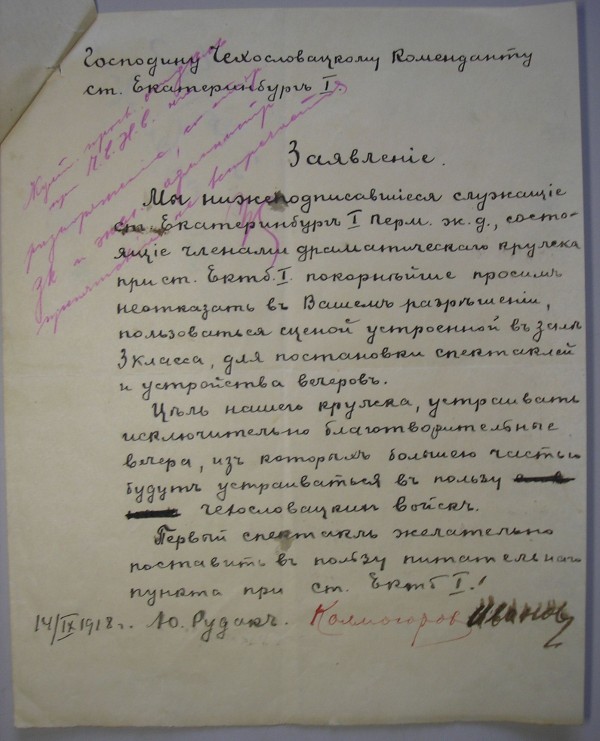 Господину Чехословацкому Коменданту
ст. Екатеринбургъ I.
Заявленiе.
Мы нижеподписавшiеся служащiе
ст. Екатеринбургъ I Перм. ж. д., состо-
ящiе членами драматическаго кружка
при ст. Ектб. I. покорнѣйше просимъ
неотказать въ Вашемъ разрѣшенiи,
пользоваться сценой устроенной въ залѣ
3 класса, для постановки спектаклей
и устройства вечеровъ.
Цѣль нашего кружка, устраивать
исключительно благотворительные
вечера, изъ которыхъ большею частью
будутъ устраиваться въ пользу
чехословацкихъ войскъ.
Первый спектакль желательно
поставить въ пользу питательнаго
пункта при ст. Ектб I.!
14/IX 1918 г. Ю. Рудакъ. Колмогоров Иванов